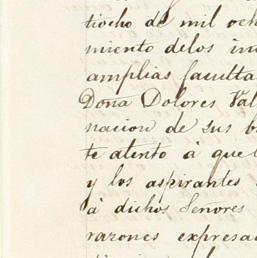 tiocho de mil och
miento delos in
amplias faculta
Doña Dolores Val
nacion de sus b
te atento à que
y los aspirantes
à dichos Señores
razones expresa